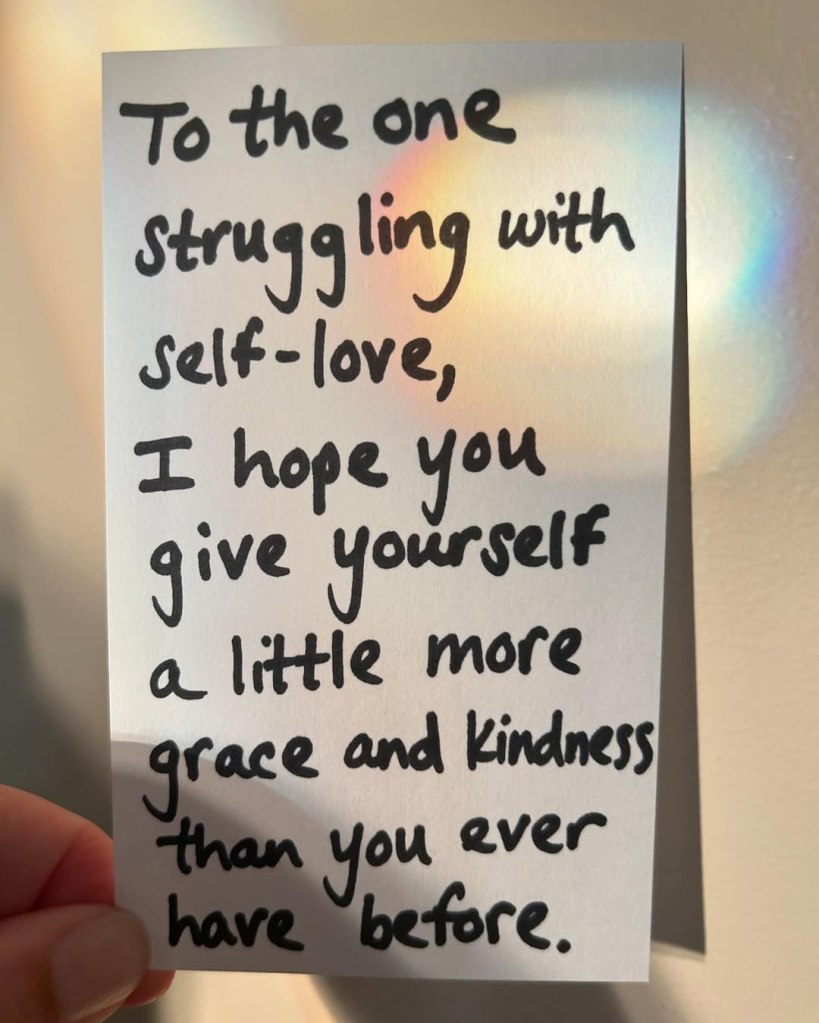 To the one
struggling with
self-love,
I hope you
give yourself
a little more
grace and kindness
than you ever
have before.